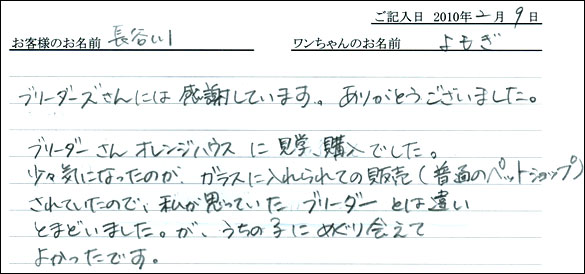 ご記入日 2010年2月9日
お客様のお名前 長谷川 ワンちゃんのお名前 よもぎ
ブリーダーズさんには感謝しています。ありがとうございました。
ブリーダーさんオレンジハウスに見学、購入でした。
少々気になったのが、ガラスに入れられての販売(普通のペットショップ)
されていたので、私が思っていた ブリーダー とは違い
とまどいました。が、うちの子にめぐり会えて
よかったです。